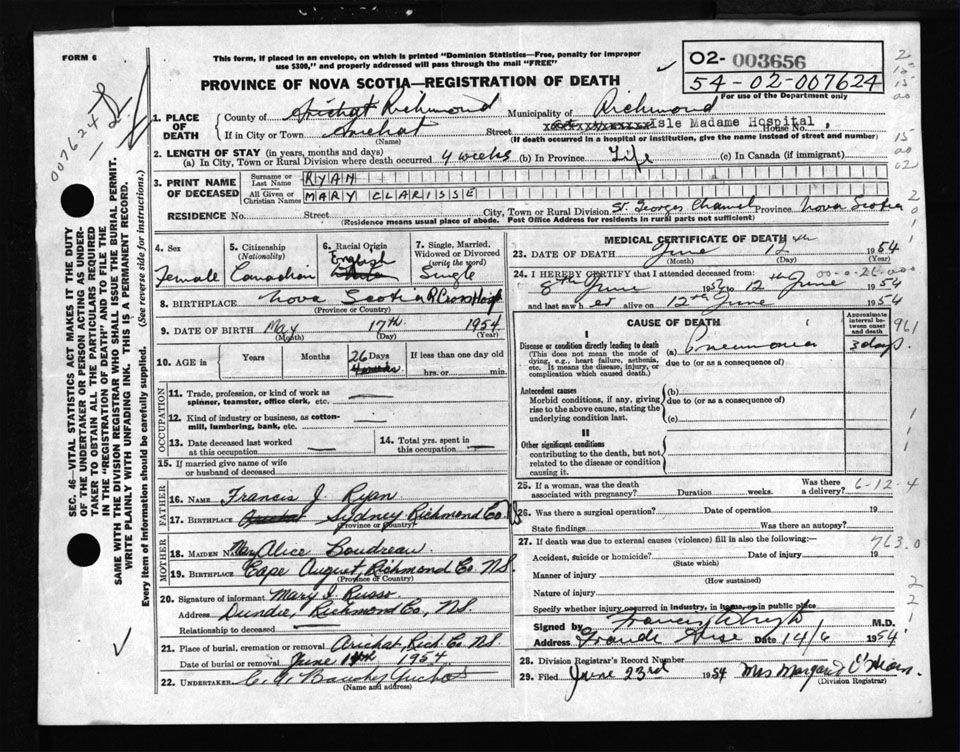 FORM 6
This form, if placed in an envelope, on which is printed "Dominion Statistics—Free, penalty for improper
use $300," and properly addressed will pass through the mail "FREE"
02- 003656
54-02-007624
For use of the Department only
PROVINCE OF NOVA SCOTIA—REGISTRATION OF DEATH
007624
1. PLACE OF DEATH
County of Arichat Richmond Municipality of Richmond
If in City or Town Arichat (Name) Street Isle Madame Hospital, House No.
(If death occurred in a hospital or institution, give the name instead of street and number)
2. LENGTH OF STAY (in years, months and days)
(a) In City, Town or Rural Division where death occurred 4 weeks (b) In Province Life (c) In Canada (if immigrant)
3. PRINT NAME OF DECEASED
Surname or Last Name RYAN
All Given or Christian Names MARY CLARISSE
RESIDENCE No. Street City, Town or Rural Division St. Georges Channel Province Nova Scotia
(Residence means usual place of abode. Post Office Address for residents in rural parts not sufficient)
4. Sex Female
5. Citizenship (Nationality) Canadian
6. Racial Origin English
7. Single, Married, Widowed or Divorced (write the word) Single
8. BIRTHPLACE Nova Scotia (Province or Country)
9. DATE OF BIRTH May (Month) 17th. (Day) 1954 (Year)
10. AGE in Years Months 26 Days If less than one day old hrs. or min.
OCCUPATION
11. Trade, profession, or kind of work as spinner, teamster, office clerk, etc.
12. Kind of industry or business, as cotton-mill, lumbering, bank, etc.
13. Date deceased last worked at this occupation
14. Total yrs. spent in this occupation
15. If married give name of wife or husband of deceased
FATHER
16. NAME Francis J. Ryan
17. BIRTHPLACE Sydney Richmond Co. NS (Province or Country)
MOTHER
18. MAIDEN NAME Alice Boudreau
19. BIRTHPLACE Cape August, Richmond Co. N.S. (Province or Country)
20. Signature of informant Mary J. Russo
Address Dundie, Richmond Co, NS.
Relationship to deceased
21. Place of burial, cremation or removal Arichat, Rich. Co. N.S.
Date of burial or removal June 14th 1954
22. UNDERTAKER
(Name and address)
MEDICAL CERTIFICATE OF DEATH
23. DATE OF DEATH June (Month) 12th (Day) 1954 (Year)
24. I HEREBY CERTIFY that I attended deceased from:
8th June 1954 to 12th June 1954
and last saw h er alive on 12th June 1954
CAUSE OF DEATH
Approximate interval between onset and death
I
Disease or condition directly leading to death (a) Pneumonia 3 days
(This does not mean the mode of dying, e.g., heart failure, asthenia, etc. It means the disease, injury, or complication which caused death.)
due to (or as a consequence of)
Antecedent causes
Morbid conditions, if any, giving rise to the above cause, stating the underlying condition last.
(b)
due to (or as a consequence of)
(c)
II
Other significant conditions
contributing to the death, but not related to the disease or condition causing it.
25. If a woman, was the death associated with pregnancy? Duration weeks. Was there a delivery? 6-12-4
26. Was there a surgical operation? Date of operation 19
State findings Was there an autopsy?
27. If death was due to external causes (violence) fill in also the following:— 763.0
Accident, suicide or homicide? (State which) Date of injury 19
Manner of injury (How sustained)
Nature of injury
Specify whether injury occurred in industry, in home, or in public place
Signed by M.D.
Address Grande Anse Date 14/6 1954
28. Division Registrar's Record Number
29. Filed June 23rd 1954 Mrs Margaret O'Hearn.
(Division Registrar)
SEC. 46—VITAL STATISTICS ACT MAKES IT THE DUTY
OF THE UNDERTAKER OR PERSON ACTING AS UNDER-
TAKER TO OBTAIN ALL THE PARTICULARS REQUIRED
IN THE "REGISTRATION OF DEATH" AND TO FILE THE
SAME WITH THE DIVISION REGISTRAR WHO SHALL ISSUE THE BURIAL PERMIT.
WRITE PLAINLY WITH UNFADING INK. THIS IS A PERMANENT RECORD.
Every item of Information should be carefully supplied. (See reverse side for instructions.)
961